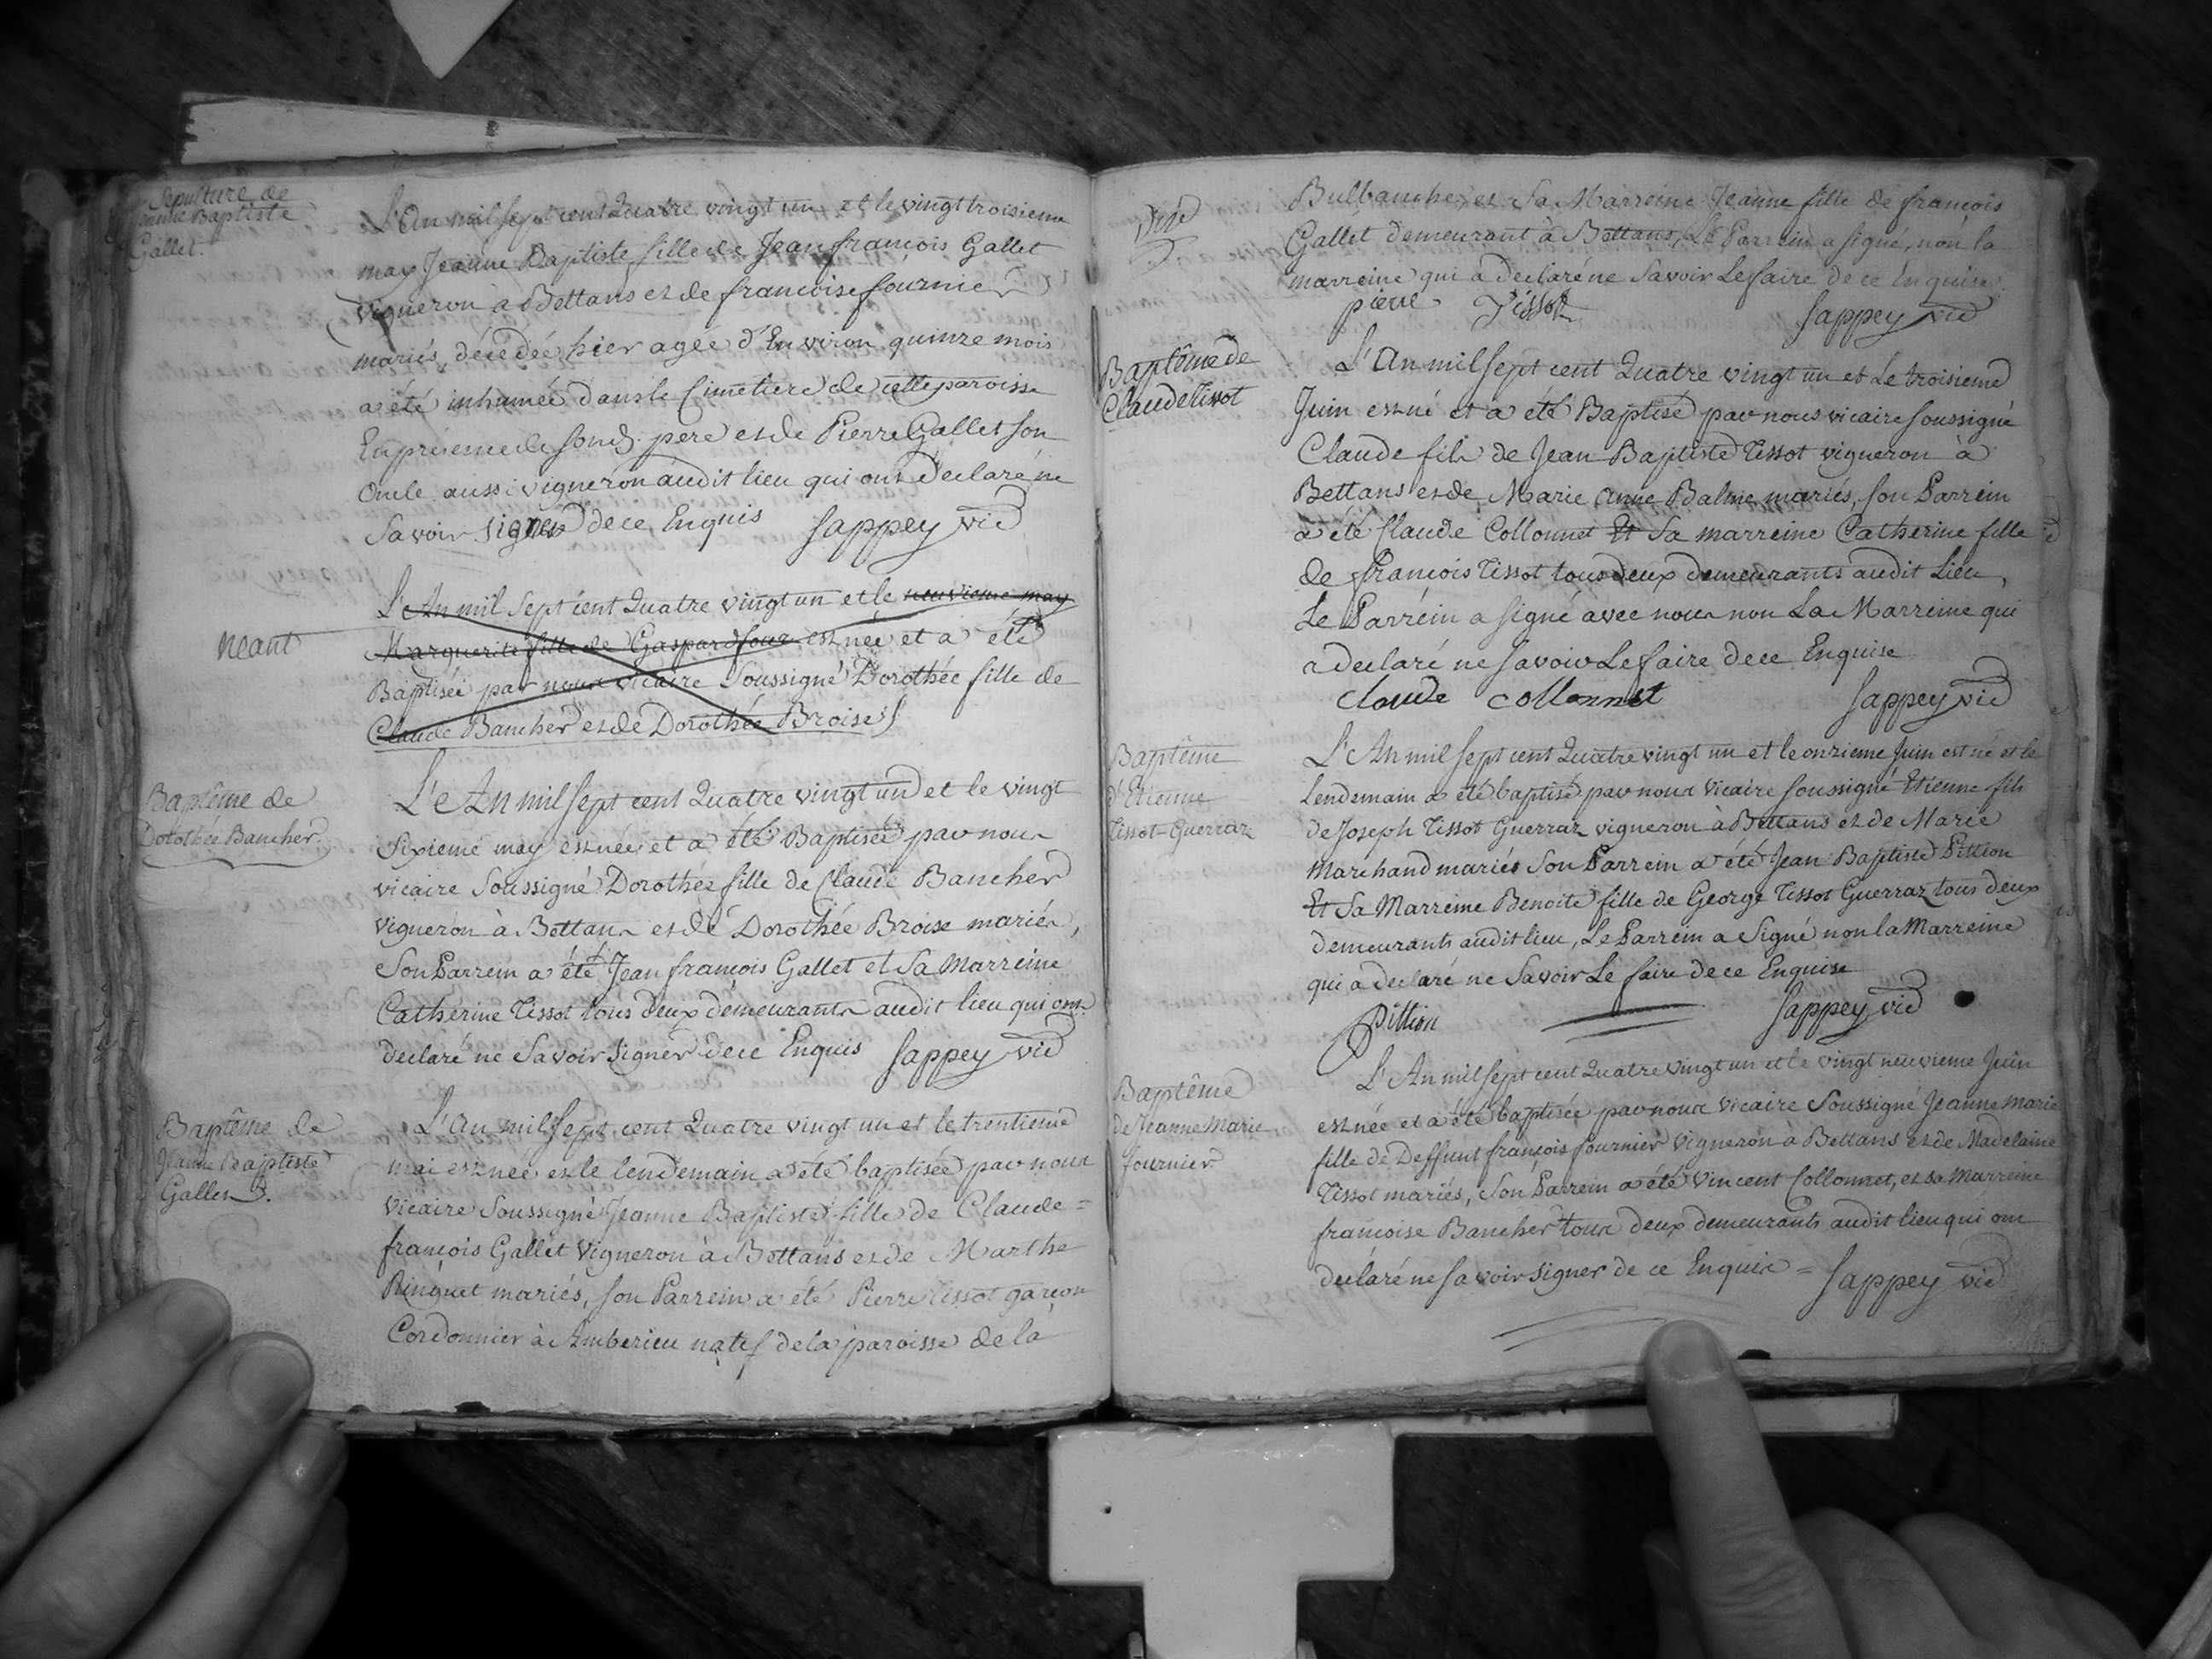 Sepulture de
Jeanne Baptiste
Gallet.
L'An mil sept cent Quatre vingt un et le vingt troisieme
may Jeanne Baptiste fille de Jean françois Gallet
vigneron à Bettans et de francoise fournier
mariés, décedée hier agée d'Environ quinze mois
a été inhumée dans le Cimetiere de cette paroisse
En présence de sond. pere et de Pierre Gallet son
Oncle aussi vigneron audit lieu qui ont déclaré ne
Savoir signer de ce Enquis Sappey vic
neant
L'An mil sept cent Quatre vingt un et le neuvieme may
Marguerite fille de Gaspard four est née et a été
Baptisée par nous vicaire Soussigné Dorothée fille de
Claude Bancher et de Dorothée Broise
Baptême de
Dorothée Bancher.
L'An mil sept cent Quatre vingt un et le vingt
Sixieme may est née et a été Baptisée par nous
vicaire Soussigné Dorothée fille de Claude Bancher
vigneron à Bettans et de Dorothée Broise mariés,
Son Parrein a été Jean françois Gallet et Sa Marreine
Catherine Tissot tous deux demeurants audit lieu qui ont
declaré ne Savoir Signer de ce Enquis Sappey vic
Baptême de
Jeanne Baptiste
Gallet.
L'an mil sept cent Quatre vingt un et le trentieme
mai est née et le lendemain a été baptisée par nous
vicaire Soussigné Jeanne Baptiste fille de Claude=
françois Gallet vigneron à Bettans et de Marthe
Ringuet mariés, son Parrein a été Pierre Tissot garçon
Cordonnier à Amberieu natif de la paroisse de la
vic
Bulbanche, et Sa Marreine Jeanne fille de françois
Gallet demeurant à Bettans, Le Parrein a signé, non la
marreine qui a declaré ne Savoir Le faire de ce Enquise.
pierre Tissot Sappey vic
Baptême de
Claude Tissot
L'An mil sept cent Quatre vingt un et Le troisieme
Juin est né et a été Baptisé par nous vicaire soussigné
Claude fils de Jean Baptiste Tissot vigneron à
Bettans et de Marie Anne Balme mariés, son Parrein
a été Claude Collonnet Et Sa marreine Catherine fille
de françois Tissot tous deux demeurants audit Lieu,
Le Parrein a signé avec nous non La Marreine qui
a declaré ne savoir Le faire de ce Enquise
Claude Collonnet Sappey vic
Baptême
d'Etienne
Tissot-Guerraz
L'An mil sept cent Quatre vingt un et le onzieme Juin est né et le
Lendemain a été baptisé par nous Vicaire soussigné Etienne fils
de Joseph Tissot Guerraz vigneron à Bettans et de Marie
Marchand mariés Son Parrein a été Jean Baptiste Pittion
Et Sa Marreine Benoite fille de George Tissot Guerraz tous deux
demeurants audit lieu, Le Parrein a Signé non la Marreine
qui a declaré ne Savoir Le faire de ce Enquise
Pittion Sappey vic
Baptême
de Jeanne Marie
fournier
L'An mil sept cent Quatre vingt un et le vingt neuvieme Juin
est née et a été baptisée par nous Vicaire Soussigné Jeanne Marie
fille de Deffunt françois fournier vigneron à Bettans et de Madelaine
Tissot mariés, Son Parrein a été Vincent Collonnet, et sa Marreine
françoise Bancher tous deux demeurants audit lieu qui ont
declaré ne Savoir signer de ce Enquis = Sappey vic